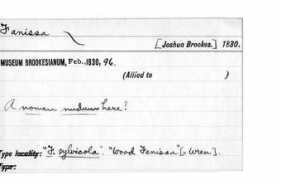 Fanissa
[Joshua Brookes.] 1830.
MUSEUM BROOKESIANUM, Feb., 1830, 96.
(Allied to )
A nomen nudum here?
Type locality: "F. sylvicola". "Wood Fanissa" [= Wren].
Type: